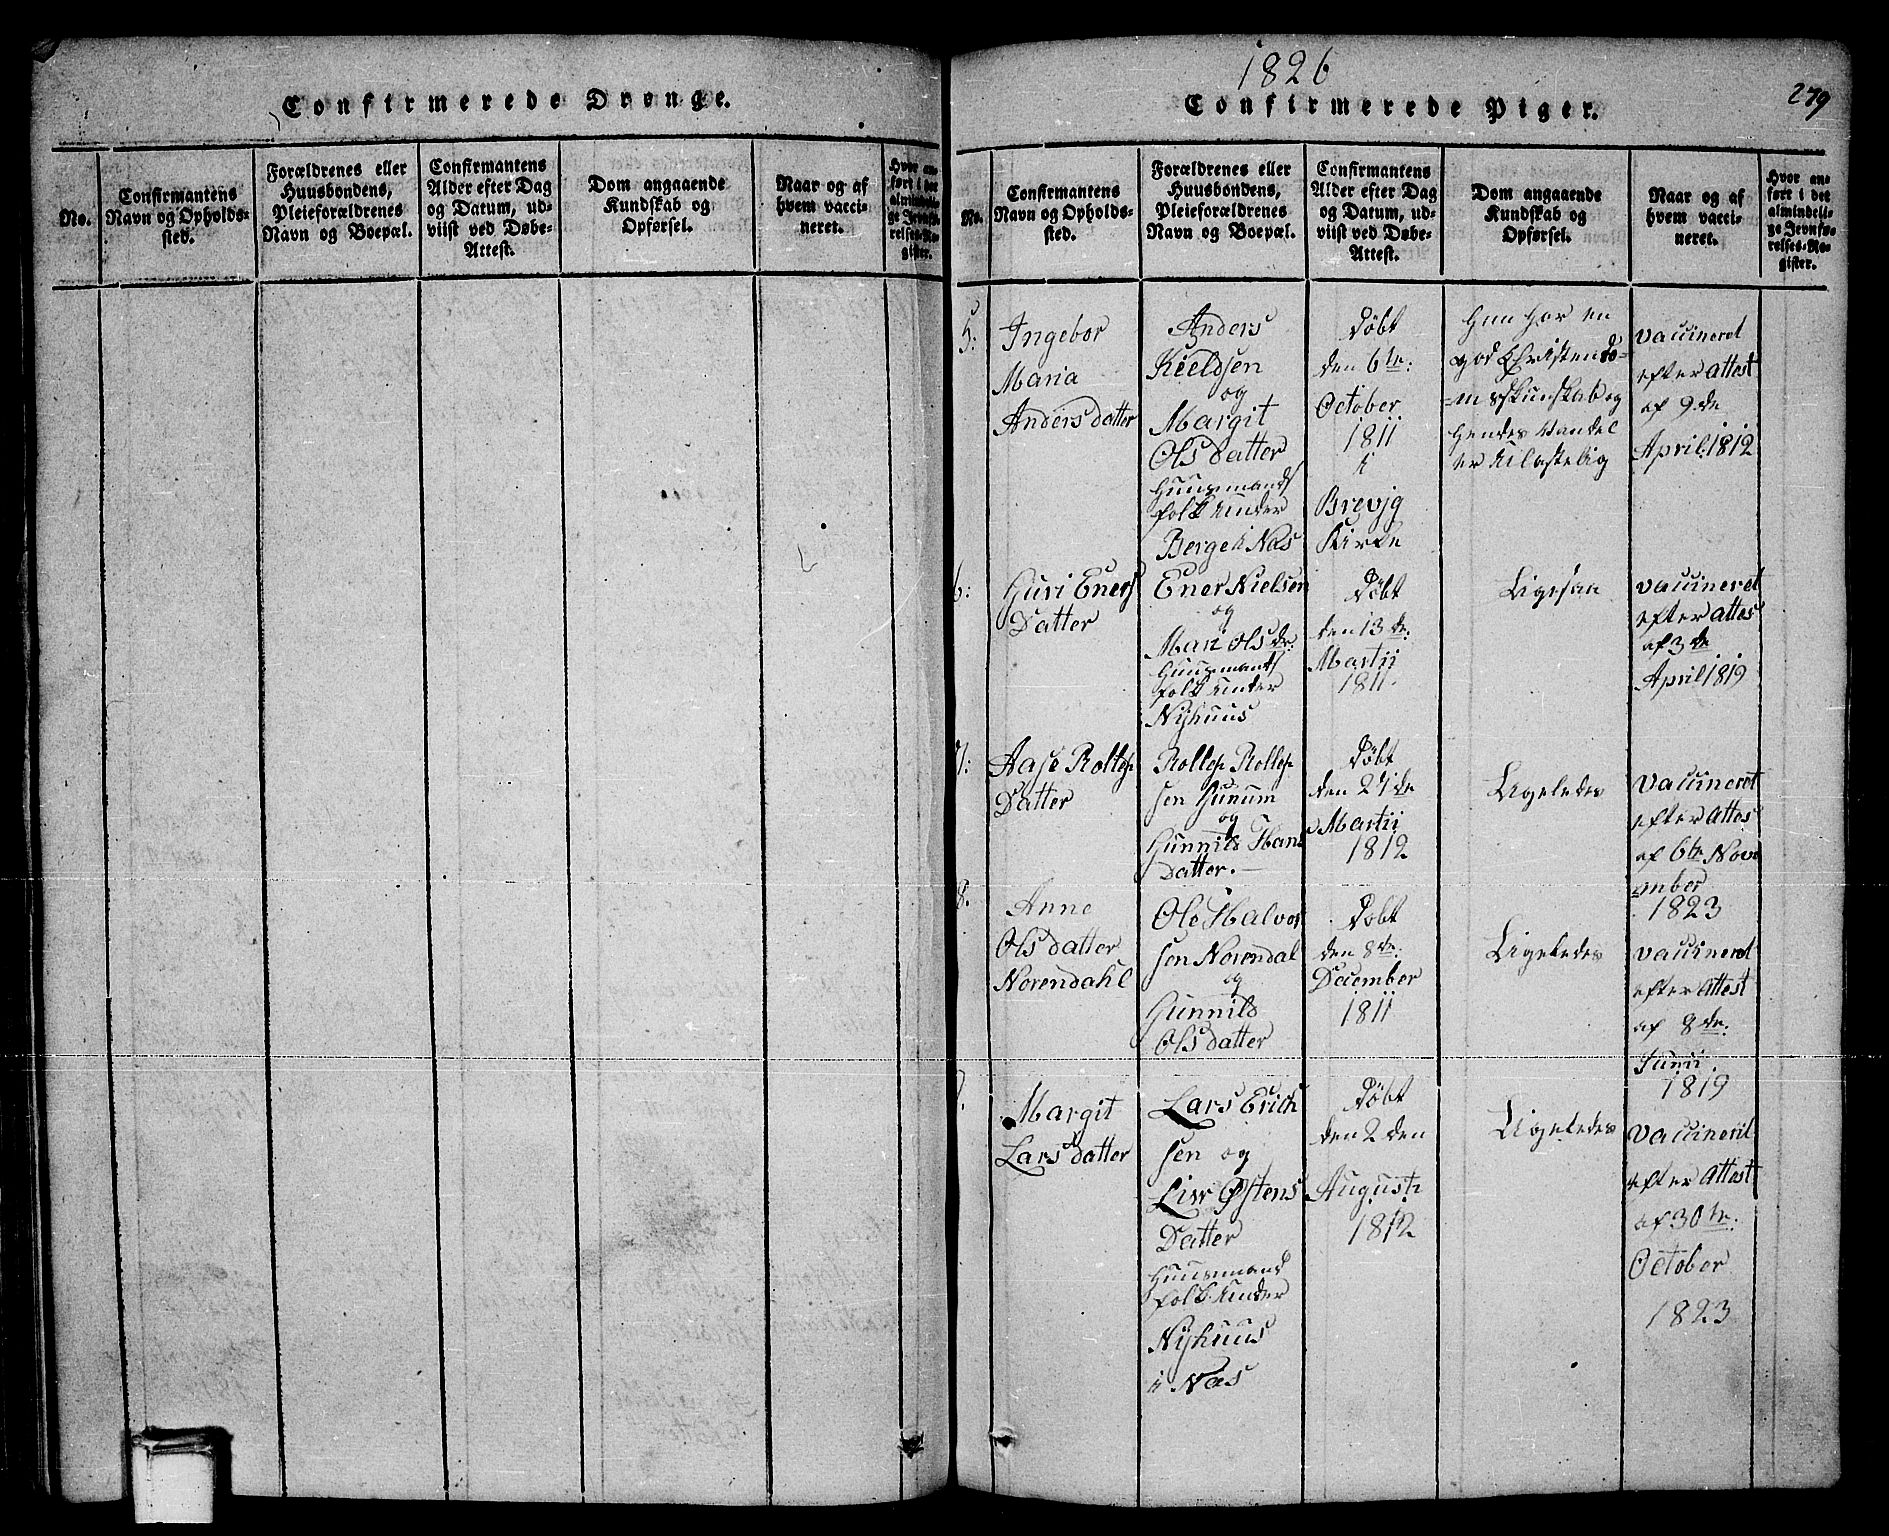 Confirmerede Drenge.
No.
Confirmantens
Navn og Opholds-
sted.
Forældrenes eller
Huusbondens,
Pleieforældrenes
Navn og Boepæl.
Confirmantens
Alder efter Dag
og Datum, ud-
viist ved Døbe-
Attest.
Dom angaaende
Kundskab og
Opførsel.
Naar og af
hvem vacci-
neret.
Hvor an-
ført i det
almindeli-
ge Jevnfø-
relses-Re-
gister.
1826
279
Confirmerede Piger.
No.
Confirmantens
Navn og Opholds-
sted.
Forældrenes eller
Huusbondens,
Pleieforældrenes
Navn og Boepæl.
Confirmantens
Alder efter Dag
og Datum, ud-
viist ved Døbe-
Attest.
Dom angaaende
Kundskab og
Opførsel.
Naar og af
hvem vacci-
neret.
Hvor an-
ført i det
almindeli-
ge Jevnfø-
relses-Re-
gister.
5:
Ingebor
Maria
Anders datter
Anders
Kieldsen
og
Margit
Ols datter
Huusmands
folk under
Berge i Næs
Døbt
den 6te:
October
1811
i
Brevig
Kirke
Hun har en
god Christendo=
=mskundskab og
hendes Vandel
er Ulastelig
vaccineret
efter attest
af 9de
April 1812
6:
Guri Eners
Datter
Ener Nielsen
og
Mari Olsdr:
Huusmands
folk under
Nyhuus
Døbt
den 13de:
Martii
1811.
Ligesaa
vaccineret
efter attes
af 3de
April 1819
7:
Aase Rollef
Datter
Rollef Rollef
sen
og
Gunnild Hans
datter.
Døbt
den 24de
Martii
1812
Ligeledes
vaccineret
efter Attes
af 6te Nov
ember
1823
8.
Anne
Ols datter
Norendahl
Ole Halvor
sen Norendal
og
Gunnild
Ols datter
Døbt
den 8de:
December
1811
Ligeledes
vaccineret
efter Attest
af 8de:
Junii.
1819
9.
Margit
Lars datter
Lars Erich
sen og
Liw Østens
Datter
Huusmand
folk under
Nyhuus
i Næs
Døbt
den 2den
Augusti
1812
Ligeledes
vaccineril
efter Attest
af 30te:
October
1823